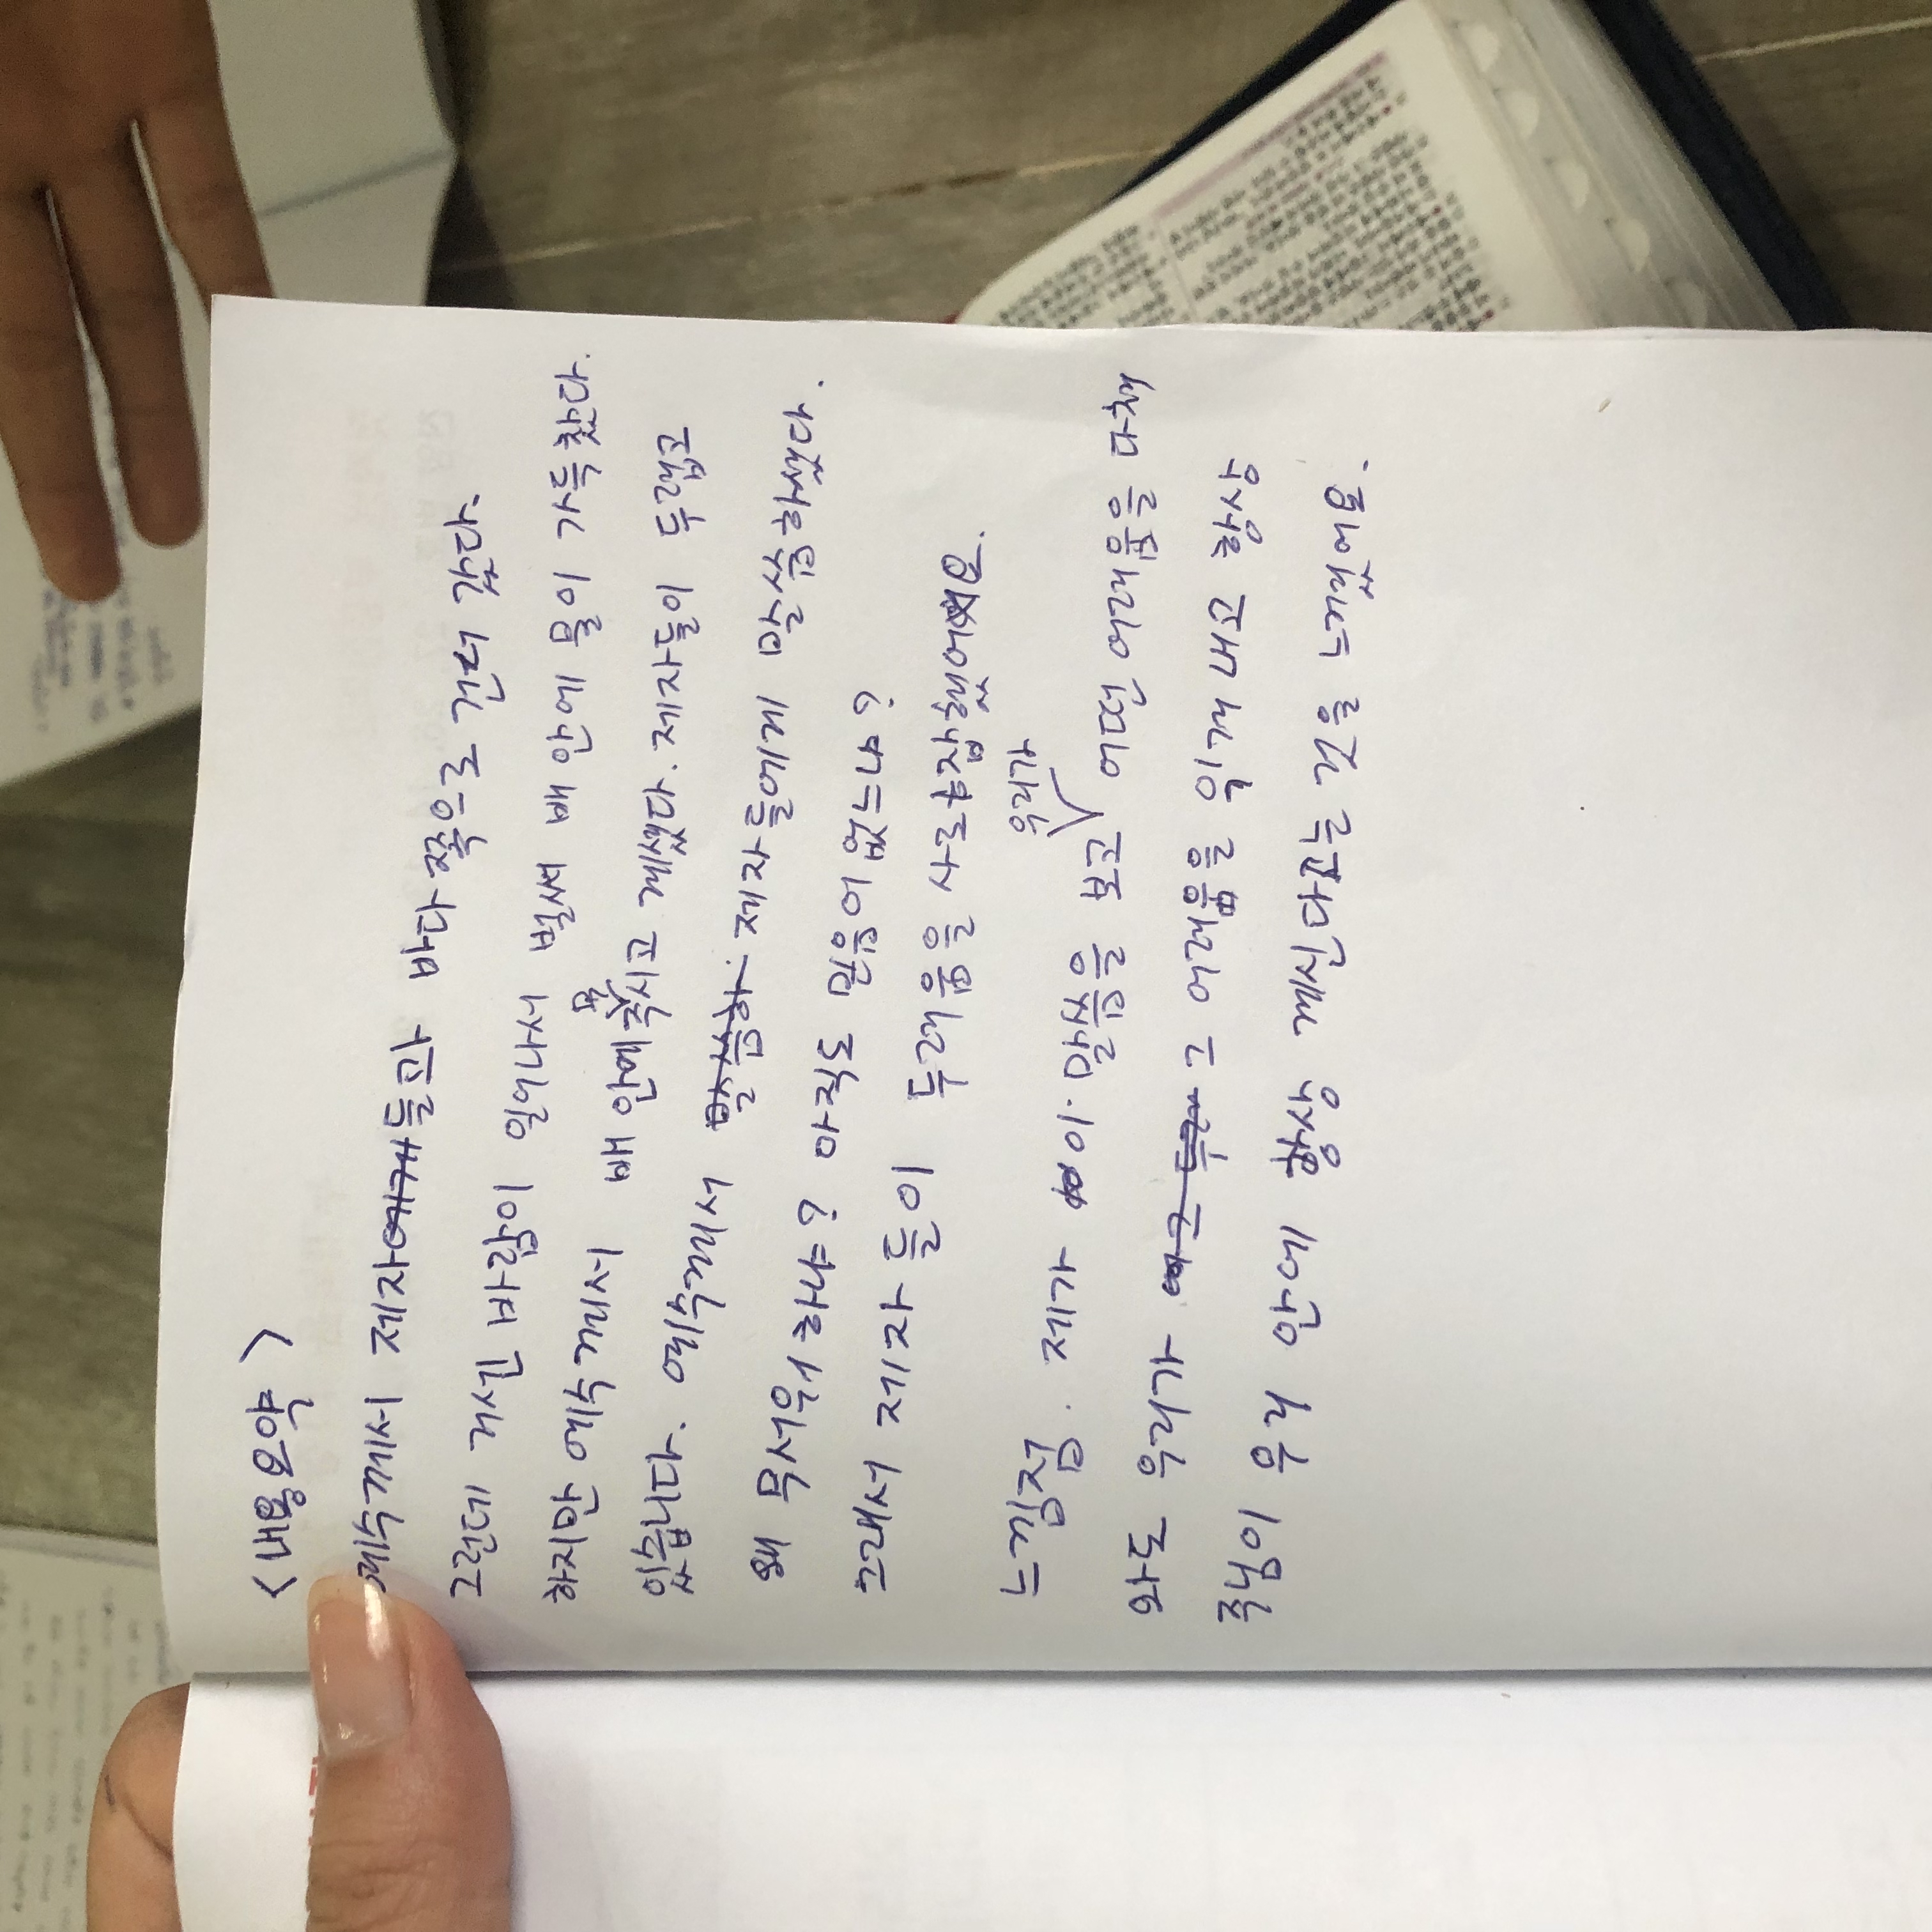 <내용요약>
예수께서 제자들과 바다 쪽으로 건너 갔다.
그런데 거센 바람이 일어나서 벌써 배 안에 물이 가득찼다.
하지만 예수께서 배 안에 주무시고 계셨다. 제자들이 두렵고
있습니다. 예수께서 제자들에게 말씀하셨다.
왜 무서워 하냐? 아직도 믿음이 없느냐?
그래서 제자 들이 두려움을 사로잡혔어요.
느낌점. 제가 이. 말씀을 보고 우리가 어떤 어려움을 닥쳐
와도 우리가 그 어려움을 이겨 내고
주님이 우리 안에 항상 계신다는 것을 느꼈어요.